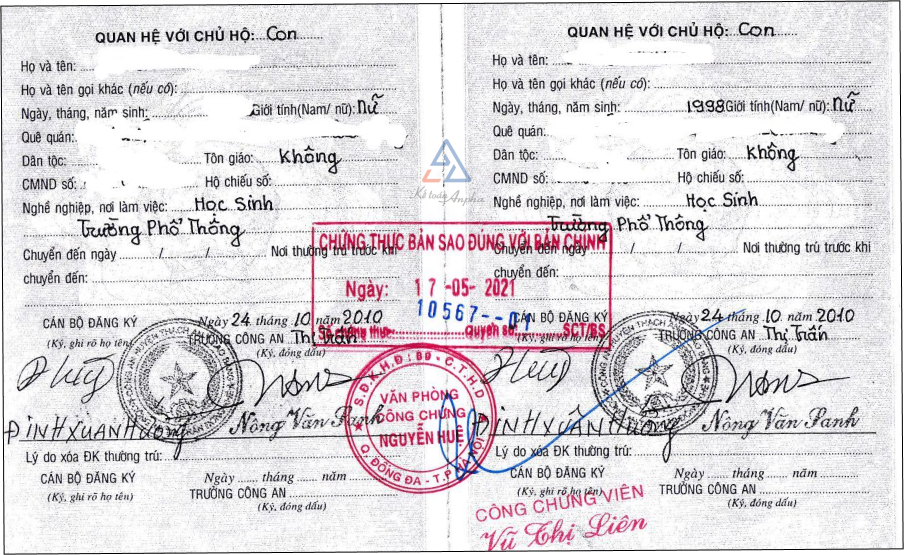 QUAN HỆ VỚI CHỦ HỘ: Con
Họ và tên:
Họ và tên gọi khác (nếu có):
Ngày, tháng, năm sinh: Giới tính(Nam/ nữ): Nữ
Quê quán:
Dân tộc: Tôn giáo: Không
CMND số: Hộ chiếu số:
Nghề nghiệp, nơi làm việc: Học Sinh
Trường Phổ Thông
Chuyển đến ngày / / Nơi thường trú trước khi
chuyển đến:
CÁN BỘ ĐĂNG KÝ Ngày 24 tháng 10 năm 2010
(Ký, ghi rõ họ tên) TRƯỞNG CÔNG AN Thị Trấn
(Ký, đóng dấu)
ĐINH XUÂN HƯỜNG Nông Văn Panh
Lý do xóa ĐK thường trú:
CÁN BỘ ĐĂNG KÝ Ngày tháng năm
(Ký, ghi rõ họ tên) TRƯỞNG CÔNG AN
(Ký, đóng dấu)
QUAN HỆ VỚI CHỦ HỘ: Con
Họ và tên:
Họ và tên gọi khác (nếu có):
Ngày, tháng, năm sinh: 1998 Giới tính(Nam/ nữ): Nữ
Quê quán:
Dân tộc: Tôn giáo: Không
CMND số: Hộ chiếu số:
Nghề nghiệp, nơi làm việc: Học Sinh
Trường Phổ Thông
Chuyển đến ngày / / Nơi thường trú trước khi
chuyển đến:
CÁN BỘ ĐĂNG KÝ Ngày 24 tháng 10 năm 2010
(Ký, ghi rõ họ tên) TRƯỞNG CÔNG AN Thị Trấn
(Ký, đóng dấu)
ĐINH XUÂN HƯỜNG Nông Văn Panh
Lý do xóa ĐK thường trú:
CÁN BỘ ĐĂNG KÝ Ngày tháng năm
(Ký, ghi rõ họ tên) TRƯỞNG CÔNG AN
(Ký, đóng dấu)
Kế toán Anpha
CHỨNG THỰC BẢN SAO ĐÚNG VỚI BẢN CHÍNH
Ngày: 17-05-2021
10567--01
Số chứng thực Quyển số SCT/BS
S.Đ.K.H.Đ: 89 - C.T.H.D
VĂN PHÒNG
CÔNG CHỨNG
NGUYỄN HUỆ
Q. ĐỐNG ĐA - T.P HÀ NỘI
CÔNG CHỨNG VIÊN
Vũ Thị Liên